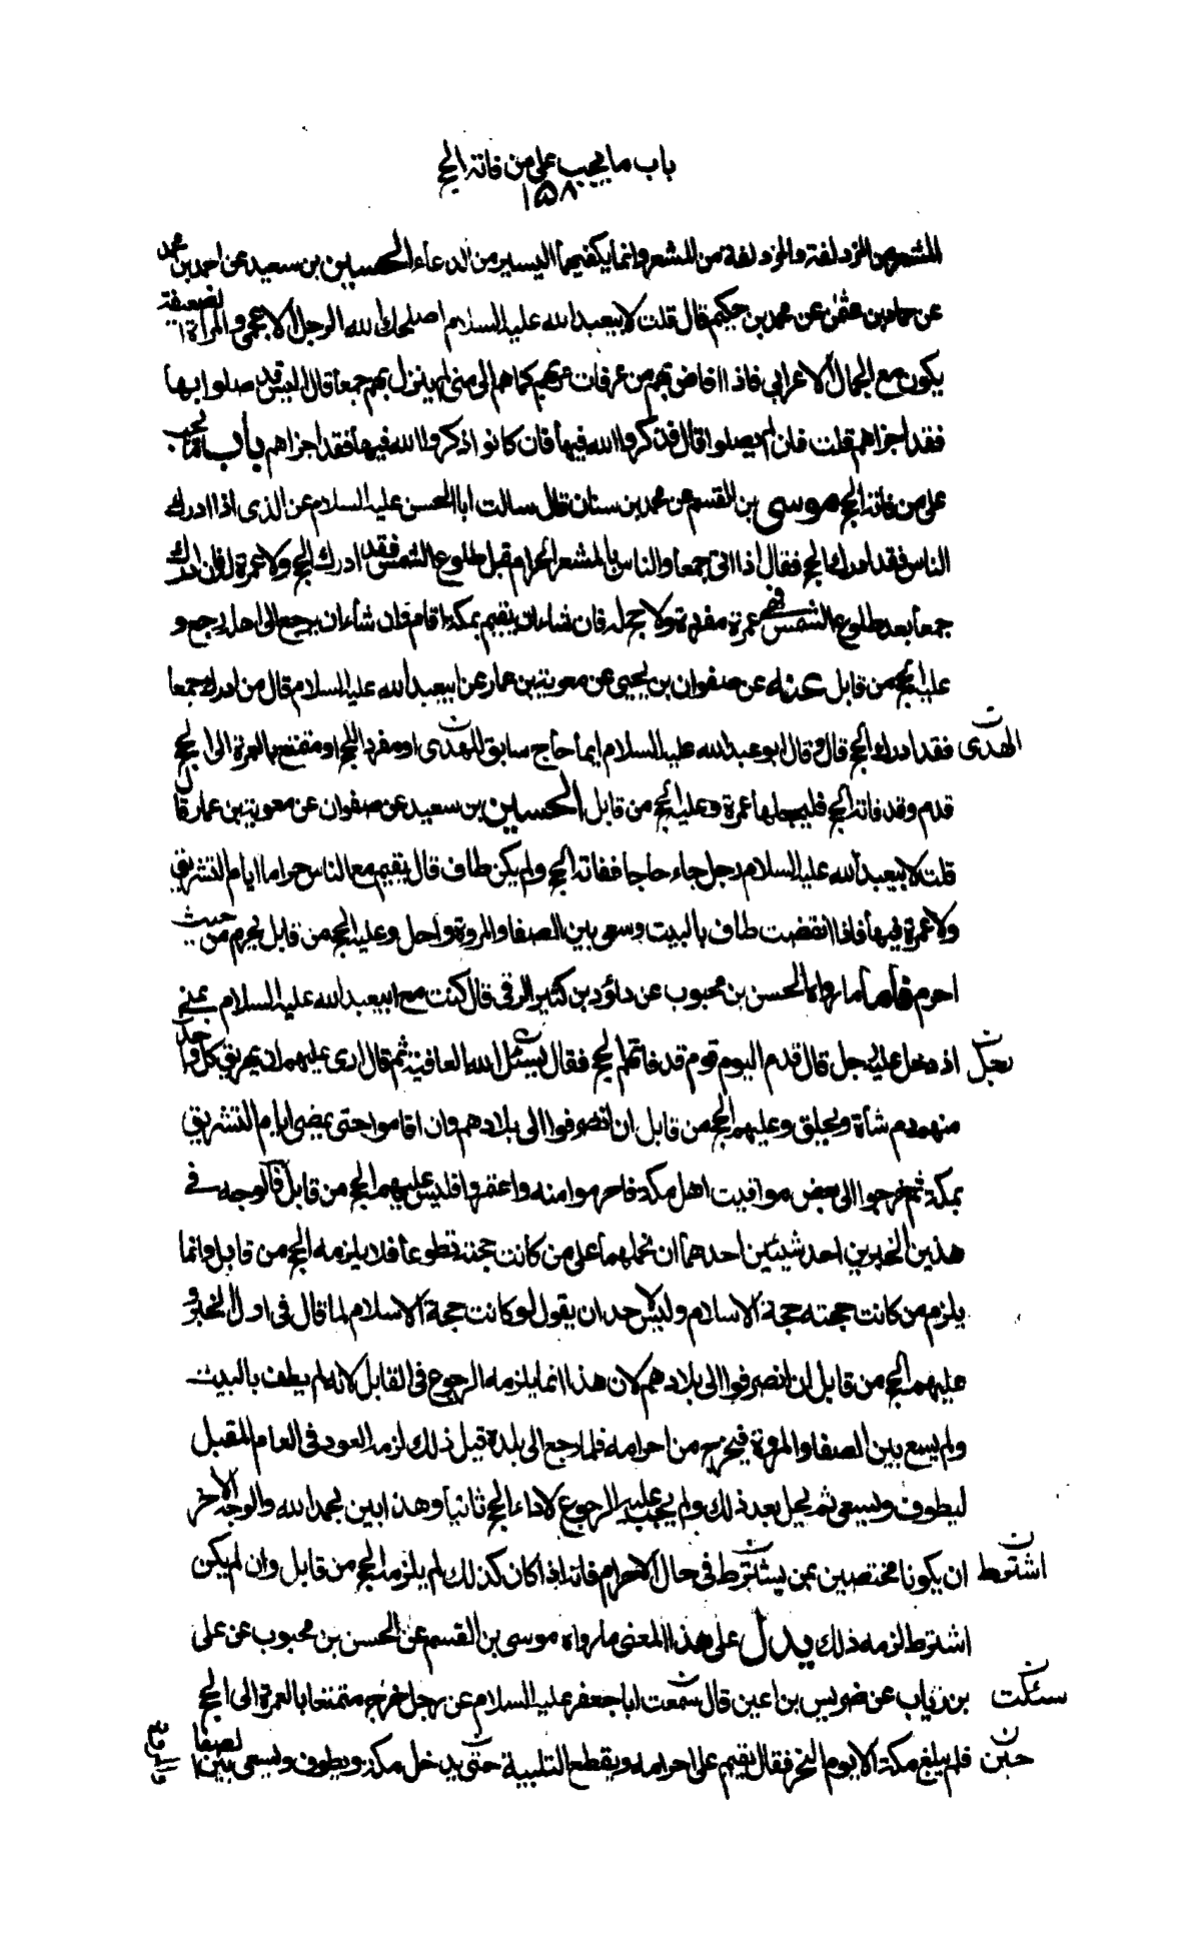 باب ما يجب على من فاته الحج
١٥٨
المشعر من المزدلفة والمزدلفة من المشعر وانما يكفيهما اليسير من الدعاء الحسين بن سعيد عن احمد بن محمد
عن حماد بن عثمن عن محمد بن حكيم قال قلت لابيعبد الله عليه السلام اصلحك الله الرجل الاعجمى والمرأة الضعيفة
يكون مع الجمال الاعرابى فاذا افاض بهم من عرفات مر بهم كما هم الى منى لم ينزل بهم جمعا قال اليس قد صلوا بها
فقد اجزاهم قلت فان لم يصلوا قال فذكروا الله فيها فان كانوا ذكروا الله فيها فقد اجزاهم باب ما يجب
على من فاته الحج موسى بن القسم عن محمد بن سنان قال سالت ابا الحسن عليه السلام عن الذى اذا ادرك
الناس فقد ادرك الحج فقال اذا اتى جمعا والناس بالمشعر الحرام قبل طلوع الشمس فقد ادرك الحج ولا عمرة له فان ادرك
جمعا بعد طلوع الشمس فهى عمرة مفردة ولا حج له فان شاء ان يقيم بمكة اقام وان شاء ان يرجع الى اهله رجع و
عليه الحج من قابل عنه عن صفوان بن يحيى عن معوية بن عمار عن ابيعبد الله عليه السلام قال من ادرك جمعا
فقد ادرك الحج قال وقال ابو عبد الله عليه السلام ايما حاج سابق للهدى او مفرد للحج او متمتع بالعمرة الى الحج الهدى
قدم وقد فاته الحج فليجعلها عمرة وعليه الحج من قابل الحسين بن سعيد عن صفوان عن معوية بن عمار قال
قلت لابيعبد الله عليه السلام رجل جاء حاجا ففاته الحج ولم يكن طاف قال يقيم مع الناس حراما ايام التشريق
ولا عمرة فيها فاذا انقضت طاف بالبيت وسعى بين الصفا والمروة واحل وعليه الحج من قابل يحرم من حيث
احرم فأما ما رواه الحسن بن محبوب عن داؤد بن كثير الرقى قال كنت مع ابيعبد الله عليه السلام بمنى
اذ دخل عليه رجل قال قدم اليوم قوم قد فاتهم الحج فقال نسئل الله العافية ثم قال ارى عليهم ان يهريق كل واحد
منهم دم شاة ويحلق وعليهم الحج من قابل ان انصرفوا الى بلادهم وان اقاموا حتى يمضى ايام التشريق
بمكة ثم خرجوا الى بعض مواقيت اهل مكة فاحرموا منه واعتمروا فليس عليهم الحج من قابل فالوجه فى
هذين الخبرين احد شيئين احدهما ان نحملهما على من كانت حجته تطوعا فلا يلزمه الحج من قابل وانما
يلزم من كانت حجته حجة الاسلام وليس لاحد ان يقول لو كانت حجة الاسلام لما قال فى اول الخبر و
عليهم الحج من قابل ان انصرفوا الى بلادهم لان هذا انما يلزمه الرجوع فى القابل لانه لم يطف بالبيت
ولم يسع بين الصفا والمروة فيخرج من احرامه فلما رجع الى بلده قبل ذلك لزمه العود فى العام المقبل
ليطوف ويسعى ثم يحل بعد ذلك ولم يجب عليه الرجوع لاداء الحج ثانيا وهذا بين بحمد الله والوجه الاخر
ان يكونا مختصين بمن يشترط فى حال الاحرام فانه اذا كان كذلك لم يلزمه الحج من قابل وان لم يكن اشترط
اشترط لزمه ذلك يدل على هذا المعنى ما رواه موسى بن القسم عن الحسن بن محبوب عن على
بن رياب عن ضريس بن اعين قال سمعت ابا جعفر عليه السلام عن رجل خرج متمتعا بالعمرة الى الحج سئلت
فلم يبلغ مكة الا يوم النحر فقال يقيم على احرامه ويقطع التلبية حتى يدخل مكة ويطوف ويسعى بين الصفا حين